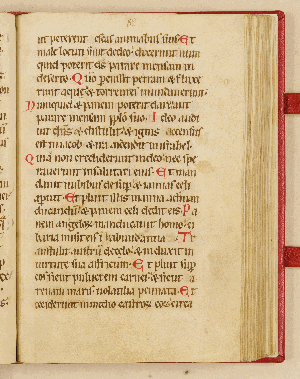 ut peterent escas animabus suis. Et
male locuti sunt de deo dixerunt num
quid poterit ds parare mensam in
deserto. Quo percussit petram et fluxe
runt aque et torrentes inundaverunt.
Numquid et panem poterit dare aut
parare mensam pplo suo. Ideo audi
vit dns et distulit et ignis accensus
est in iacob et ira ascendit in israhel.
Quia non crediderunt in deo nec spe
raverunt in salutare eius. Et man
davit nubibus desup et ianuas celi
aperuit. Et pluit illis manna ad man
ducandu et panem celi dedit eis. Pa
nem angelor manducavit homo ci
baria misit eis i habundantia. Tr
anstulit austru de celo et induxit in
virtute sua affricum. Et pluit sup
eos sicut pulverem carnes et sicut a
renam maris volatilia pennata. Et
ceciderunt in medio castror eor circa